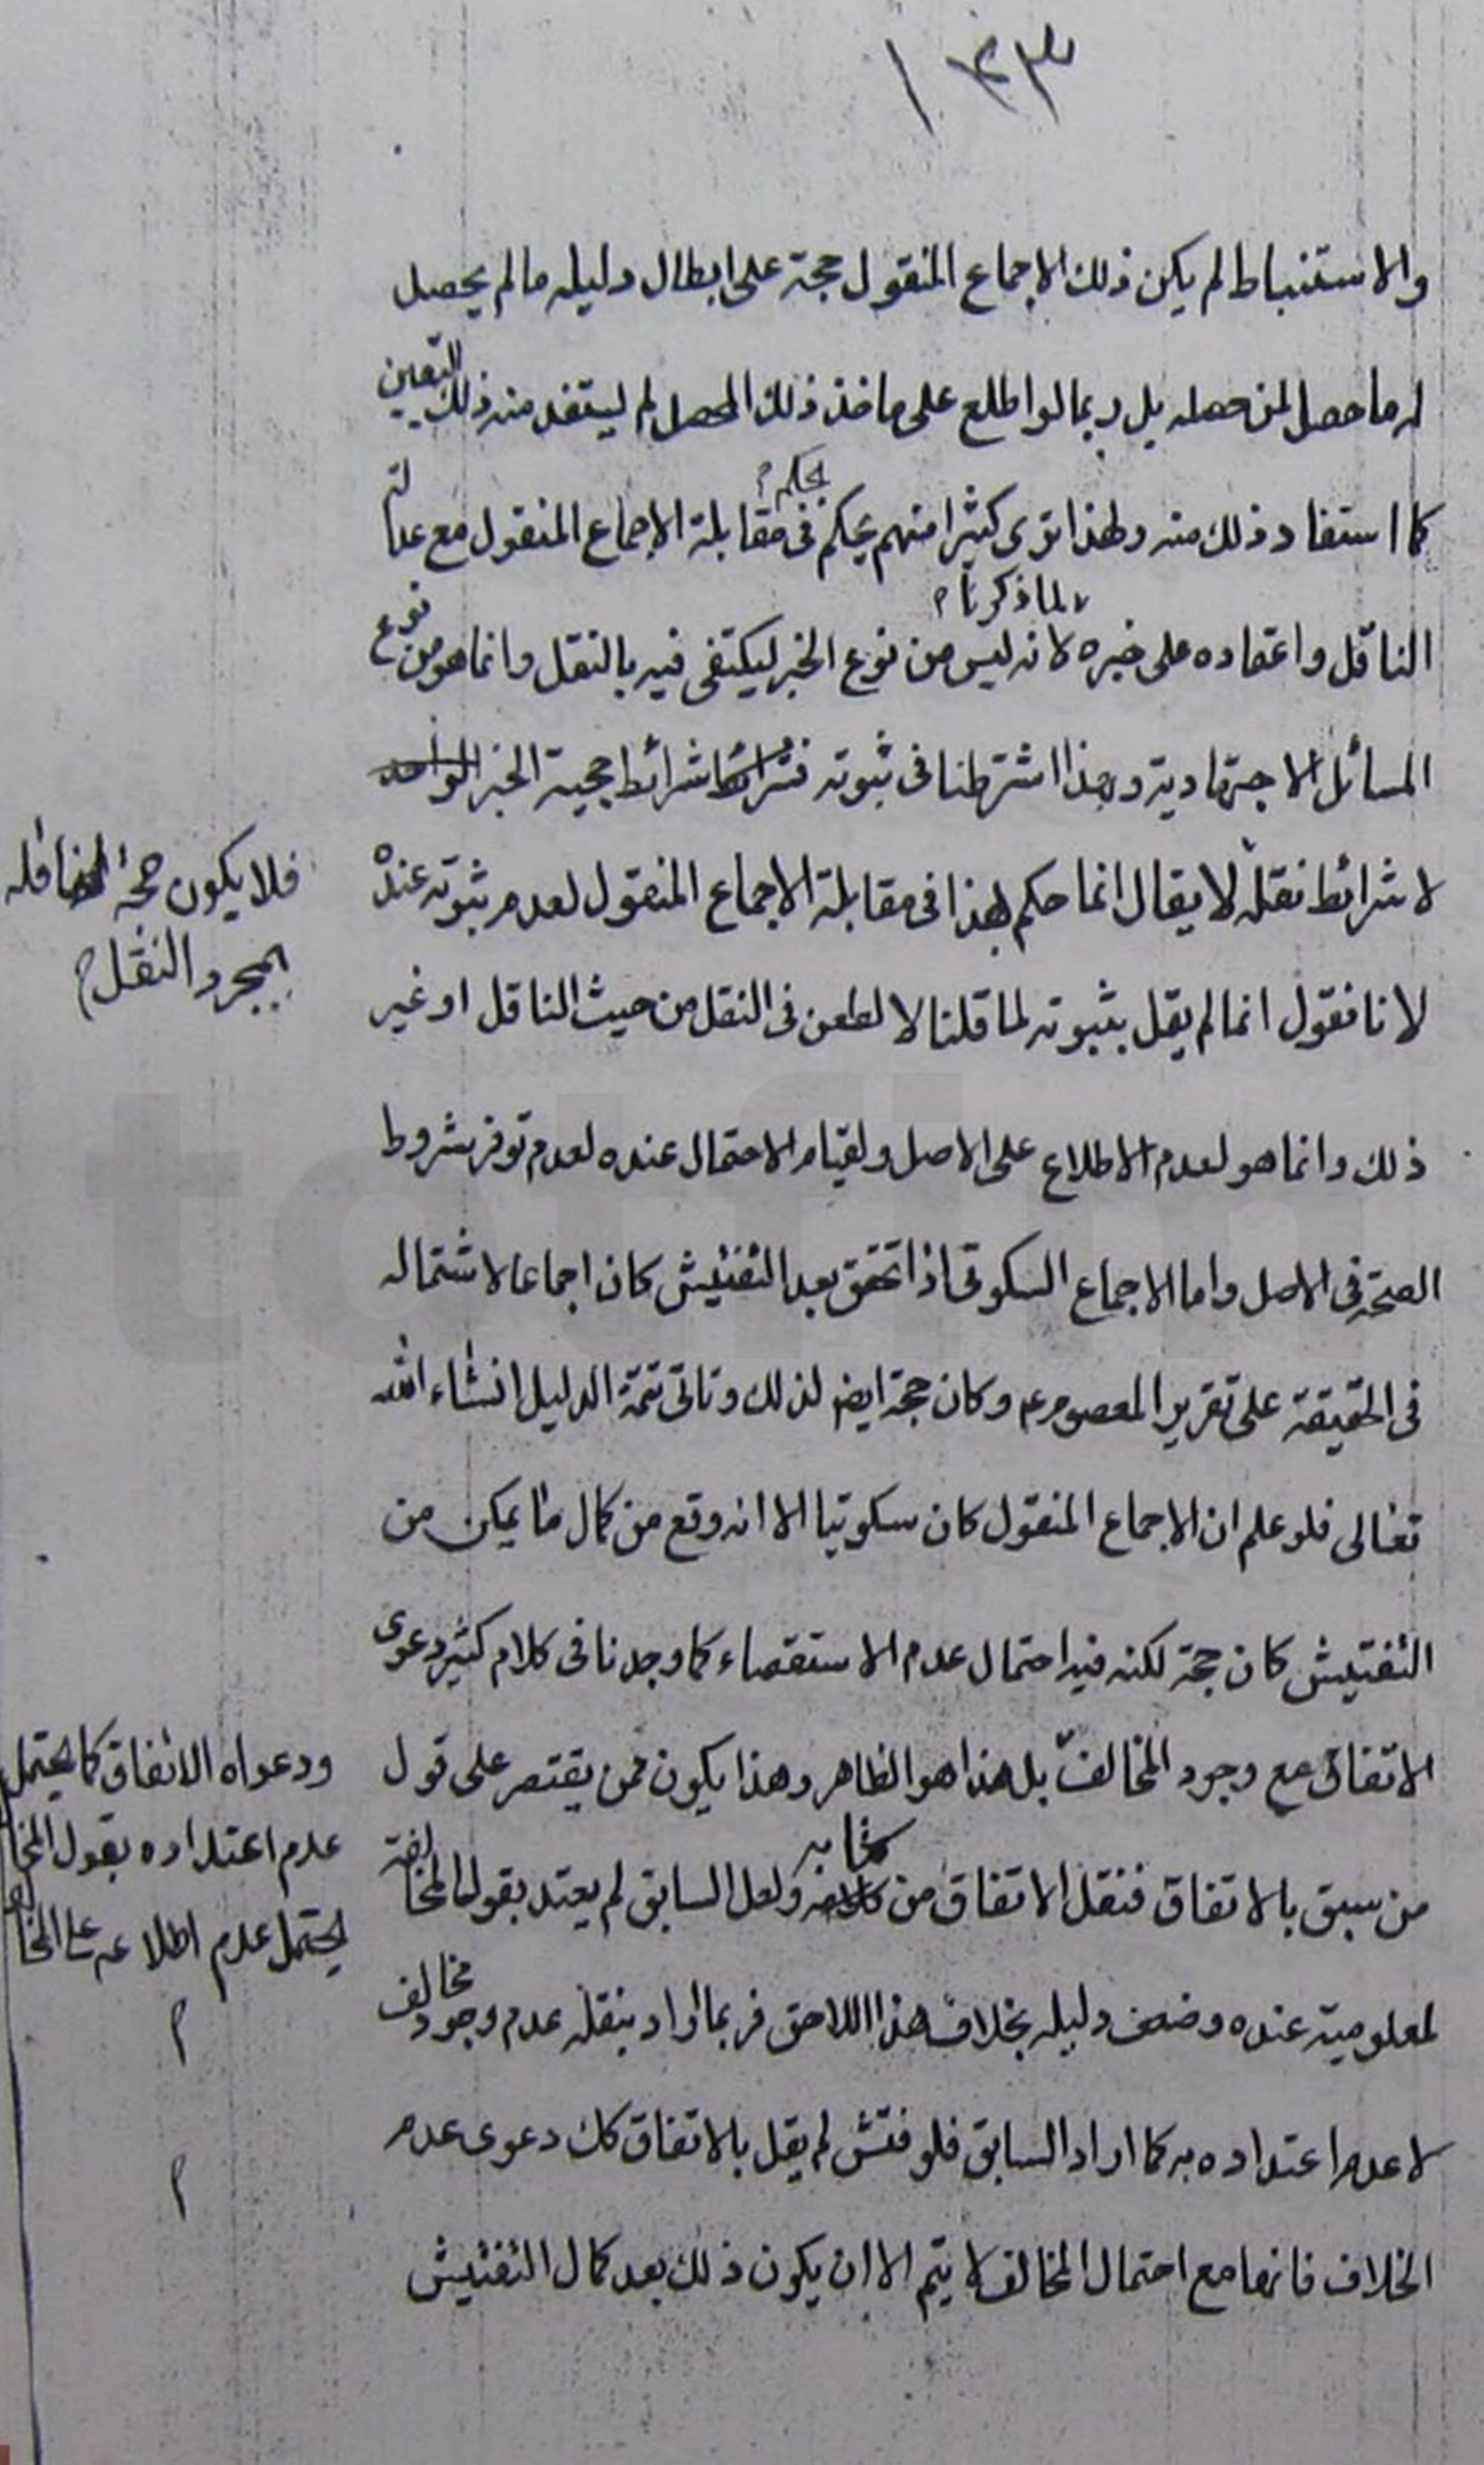 ١٤٣
والاستنباط لم يكن ذلك الاجماع المنقول حجة على ابطال دليله ما لم يحصل
له ما حصل لمن حصله بل ربما لو اطلع على ماخذ ذلك المحصل لم يستفد منه ذلك اليقين
كما استفاد ذلك منه ولهذا ترى كثيرا منهم يحكم في مقابلة الاجماع المنقول مع عدالة
بحكم م
الناقل واعتماده على خبره لانه ليس من نوع الخبر ليكتفى فيه بالنقل وانما هو من نوع
لما ذكرنا م
المسائل الاجتهادية وبهذا اشترطنا في ثبوته شرائط حجية الخبر الواحد
لا شرائط نقله لا يقال انما حكم بهذا في مقابلة الاجماع المنقول لعدم ثبوته عنده
فلا يكون حجة
بمجرد النقل م
لانا نقول انما لم يقل بثبوته لما قلنا لا لطعن في النقل من حيث الناقل او غير
ذلك وانما هو لعدم الاطلاع على الاصل ولقيام الاحتمال عنده لعدم توفر شروط
الصحة في الاصل واما الاجماع السكوتى اذا تحقق بعد التفتيش كان اجماعا لاشتماله
في الحقيقة على تقرير المعصوم ع وكان حجة ايضا لذلك وتاتى تتمة الدليل انشاء الله
تعالى فلو علم ان الاجماع المنقول كان سكوتيا الا انه وقع من كمال ما يمكن من
التفتيش كان حجة لكنه فيه احتمال عدم الاستقصاء كما وجدنا في كلام كثير دعوى
الاتفاق مع وجود المخالف بل هذا هو الظاهر وهذا يكون ممن يقتصر على قول
من سبق بالاتفاق فنقل الاتفاق من كتابه ولعل السابق لم يعتد بقول المخالفة
لمعلوميته عنده وضعف دليله بخلاف هذا اللاحق فربما اراد بنقله عدم وجود مخالف
ودعواه الاتفاق كما يحتمل
عدم اعتداده بقول المخا
يحتمل عدم اطلاعه على
م
م
لا عدم اعتداده به كما اراد السابق فلو فتش لم يقل بالاتفاق كك دعوى عدم
الخلاف فانها مع احتمال المخالف لا يتم الا ان يكون ذلك بعد كمال التفتيش
totfim